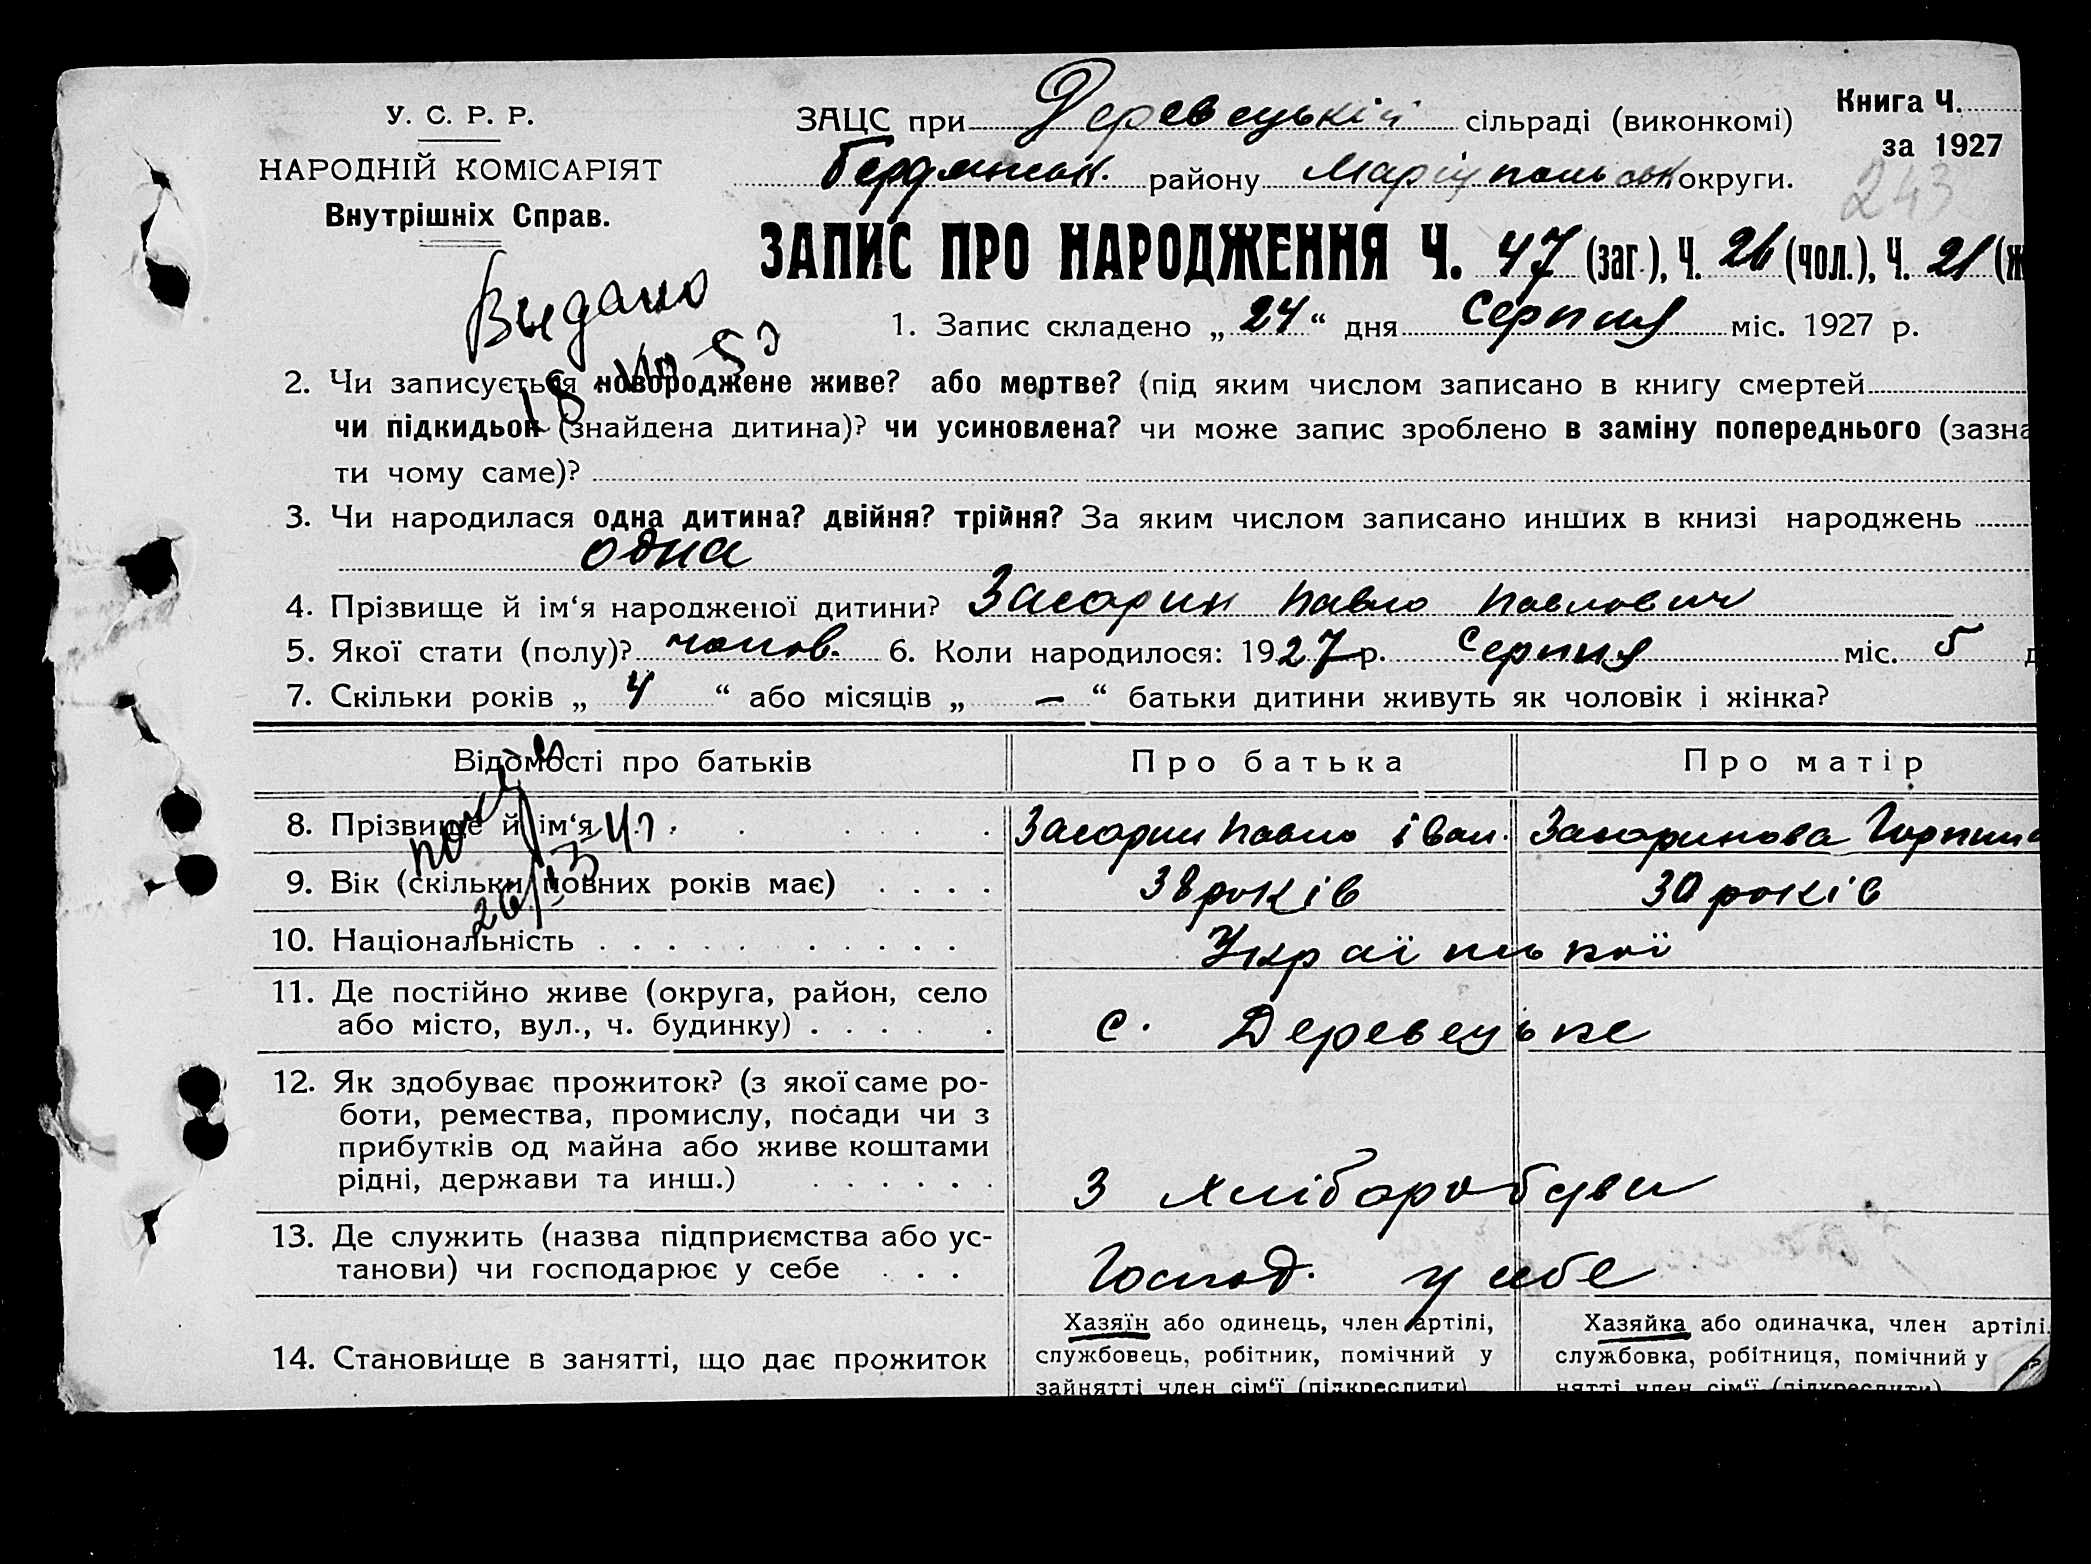 У. С. Р. Р.
НАРОДНІЙ КОМІСАРІЯТ
Внутрішніх Справ.
ЗАЦС при Деревецькій сільраді (виконкомі)
Бердянськ. району Маріупольськ округи.
Книга Ч.
за 1927
243
ЗАПИС ПРО НАРОДЖЕННЯ Ч. 47 (заг.), Ч. 26 (чол.), Ч. 21 (ж
Выдано
18
1. Запис складено „ 24 “ дня Серпня міс. 1927 р.
2. Чи записується новороджене живе? або мертве? (під яким числом записано в книгу смертей
чи підкидьок (знайдена дитина)? чи усиновлена? чи може запис зроблено в заміну попереднього (зазна
ти чому саме)?
3. Чи народилася одна дитина? двійня? трійня? За яким числом записано инших в книзі народжень
одна
4. Прізвище й ім‘я народженої дитини? Засорин Павло Павлович
5. Якої стати (полу)? чолов. 6. Коли народилося: 1927 р. Серпня міс. 5 д
7. Скільки років „ 4 “ або місяців „ — “ батьки дитини живуть як чоловік і жінка?
Відомості про батьків Про батька Про матір
8. Прізвище й ім‘я Засорин Павло Іван. Засоринова Горпина
9. Вік (скільки повних років має) 38 років 30 років
10. Національність Української
11. Де постійно живе (округа, район, село
або місто, вул., ч. будинку) с. Деревецьке
12. Як здобуває прожиток? (з якої саме ро-
боти, ремества, промислу, посади чи з
прибутків од майна або живе коштами
рідні, держави та инш.) З хліборобства
13. Де служить (назва підприємства або ус-
танови) чи господарює у себе Господ. у себе
14. Становище в занятті, що дає прожиток
Хазяїн або одинець, член артілі,
службовець, робітник, помічний у
зайнятті член сім‘ї (підкреслити)
Хазяйка або одиначка, член артілі.
службовка, робітниця, помічний у
нятті член сім‘ї (підкреслити)